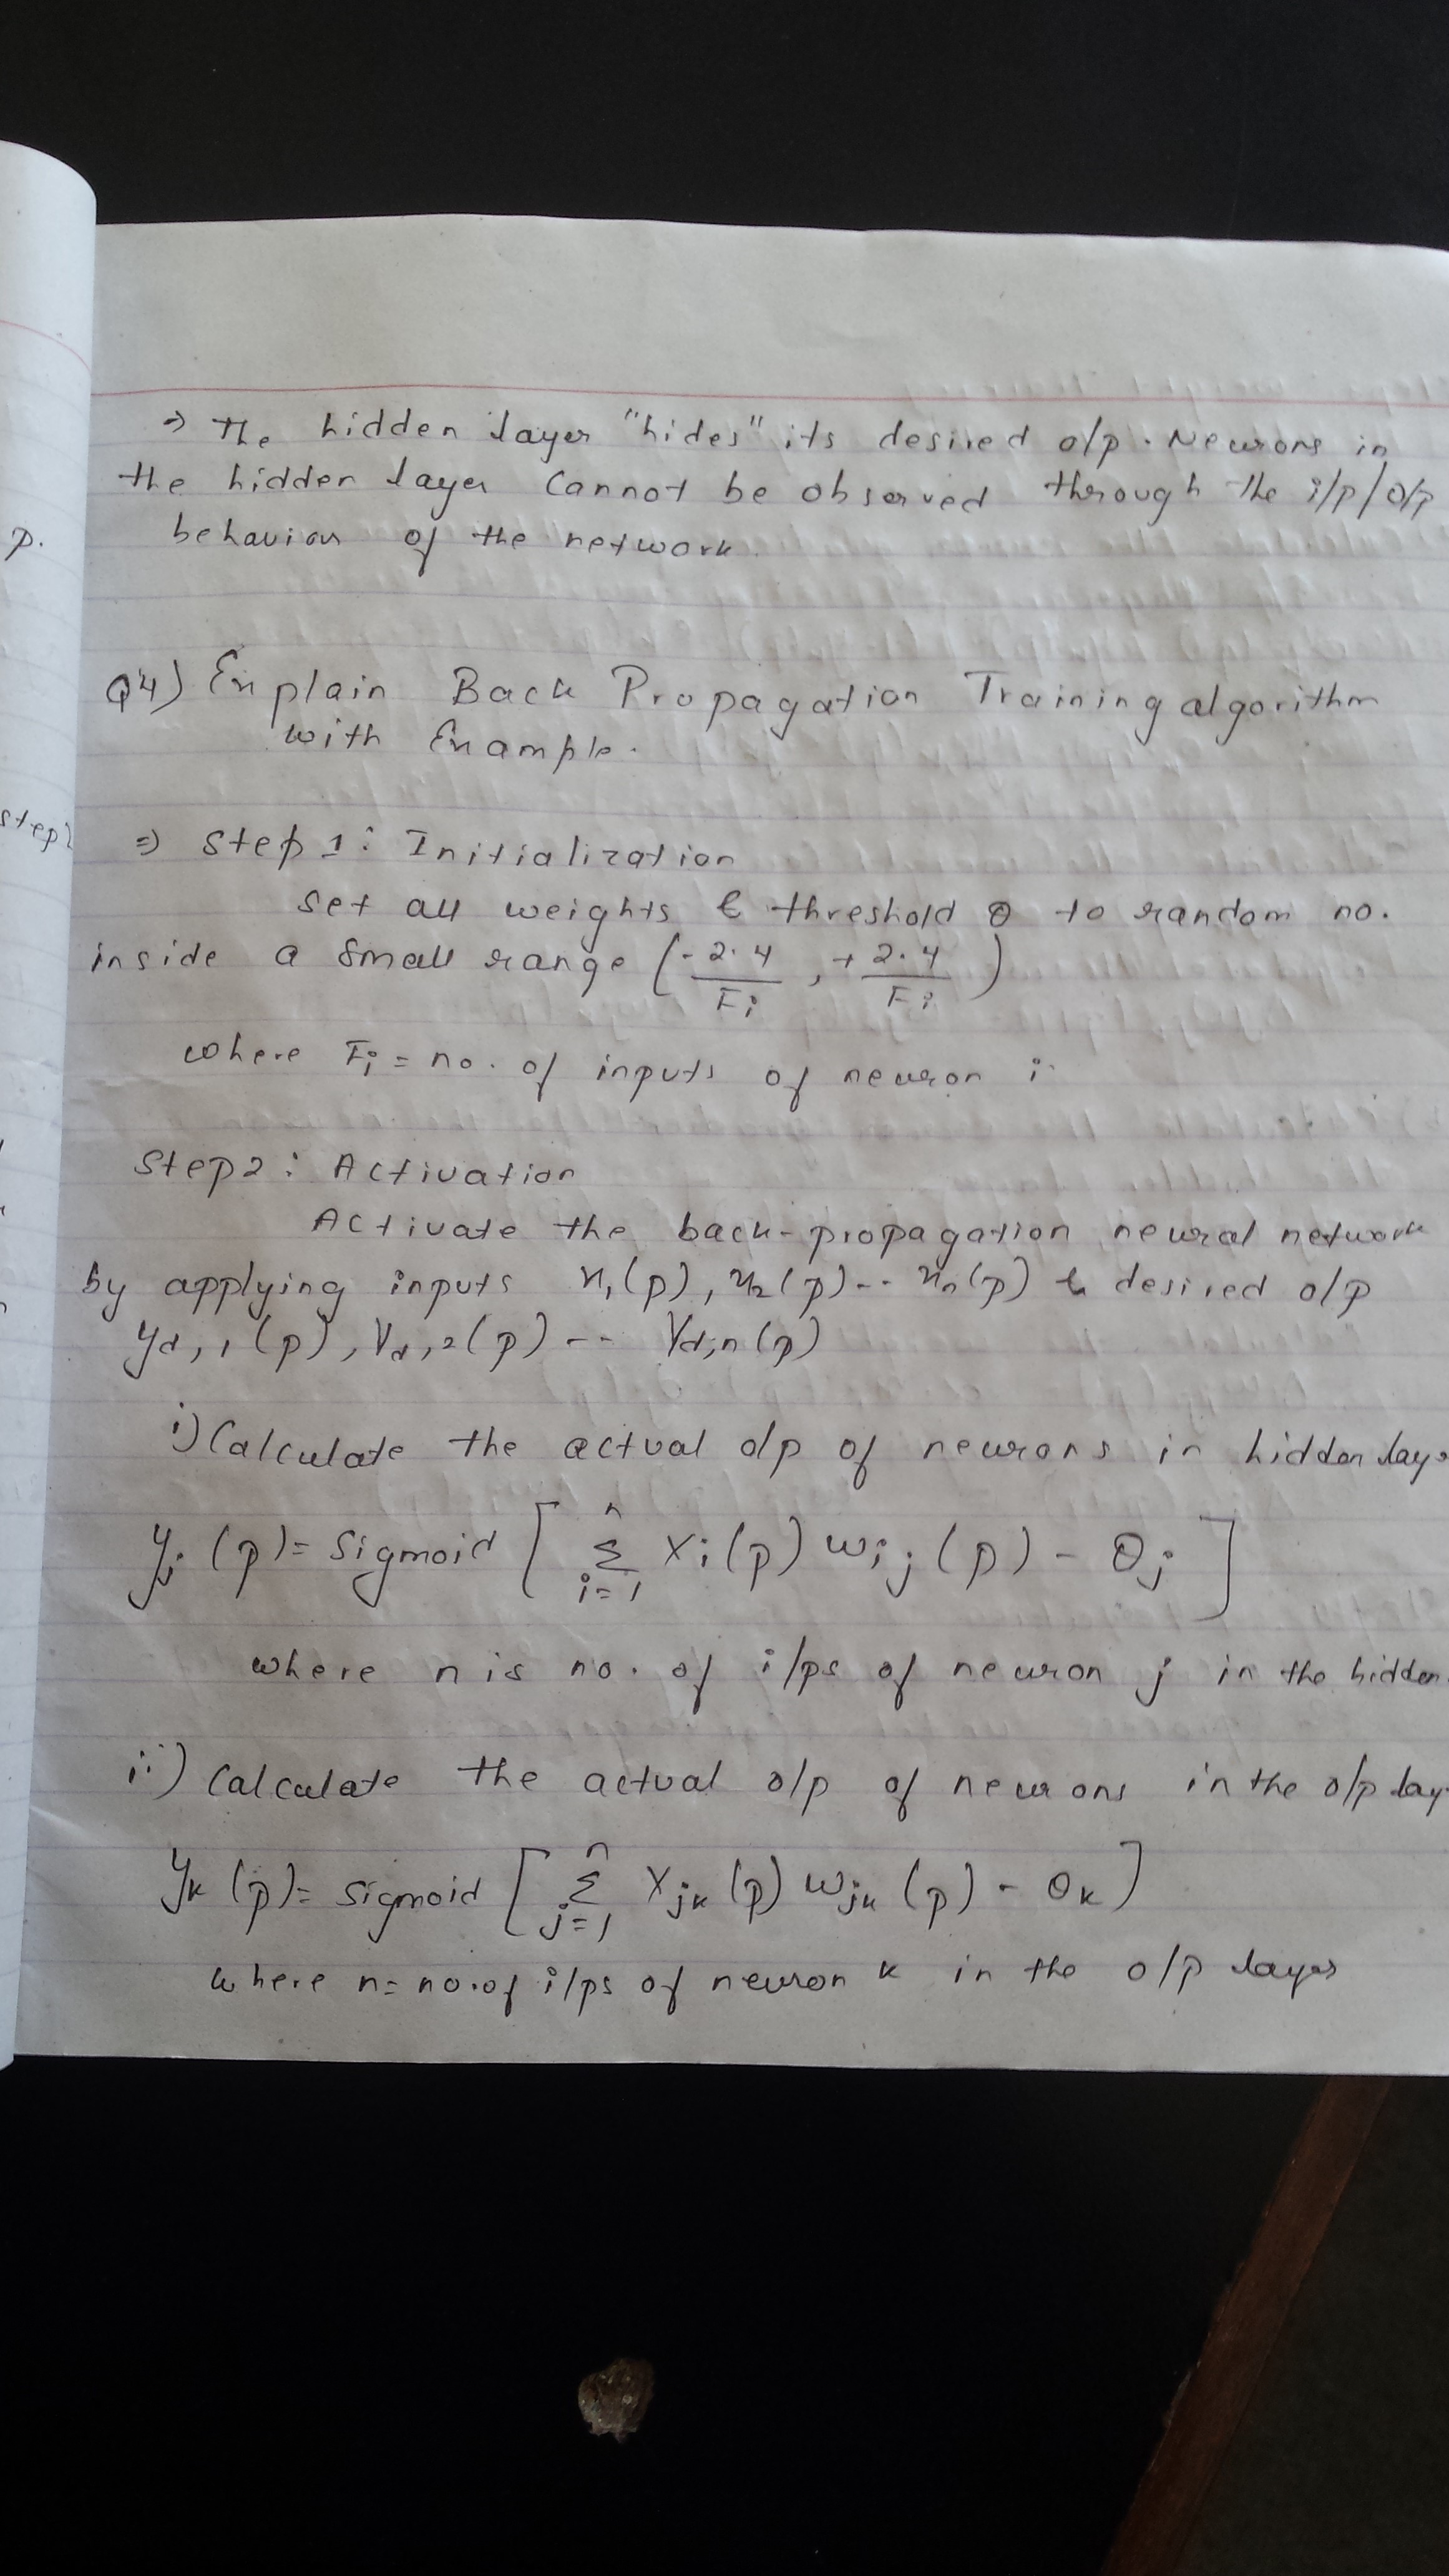 ⇒ The hidden layer "hides" its desired o/p. Neurons in
the hidden layer cannot be observed through the i/p / o/p
behaviour of the network.
p.
Q4) Explain Back Propagation Training algorithm
with Example.
step
⇒ Step 1: Initialization
Set all weights & threshold θ to random no.
inside a small range (-2.4/Fi, +2.4/Fi)
where Fi = no. of inputs of neuron i.
Step 2: Activation
Activate the back-propagation neural network
by applying inputs x1(p), x2(p)-- xn(p) & desired o/p
yd,1(p), yd,2(p) -- yd,n(p)
i) Calculate the actual o/p of neurons in hidden
yj(p) = Sigmoid [ n Σ i=1 xi(p) wij(p) - θj ]
where n is no. of i/ps of neuron j in the hidden
ii) Calculate the actual o/p of neurons in the o/p lay
yk(p) = Sigmoid [ n Σ j=1 xjk(p) wjk(p) - θk ]
where n = no. of i/ps of neuron k in the o/p layer